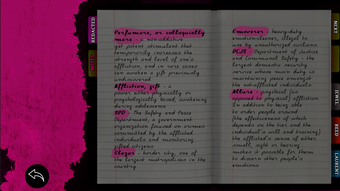 REDACTED
NOTES
Performore, or colloquially
more - a non-addictive
yet potent stimulant that
temporarily increases the
strength and level of one's
affliction, and in rare cases
can awaken a gift previously
undiscovered
Affliction, gift - a
power either physically or
psychologically based, awakening
during adolescence
SPD - The Safety and Peace
Department, a government
organization focused on crimes
committed by the afflicted
individuals and monitoring
gifted citizens
- border city, one of
the largest metropolises in the
country
- heavy-duty
illegal to
use by unauthorized citizens
- Department of Justice
and Communal Safety - the
largest domestic security
service whose main duty is
maintaining peace amongst
the non-afflicted individuals
Allure - psychical (as
opposed to physical) affliction
(in addition to being able
to order people around
(the effectiveness of which
depends on the ties and the
individual's will and training))
afflicted's sense of either
smell, sight or hearing
makes it possible for them
to discern other people's
emotions
NEXT
REED